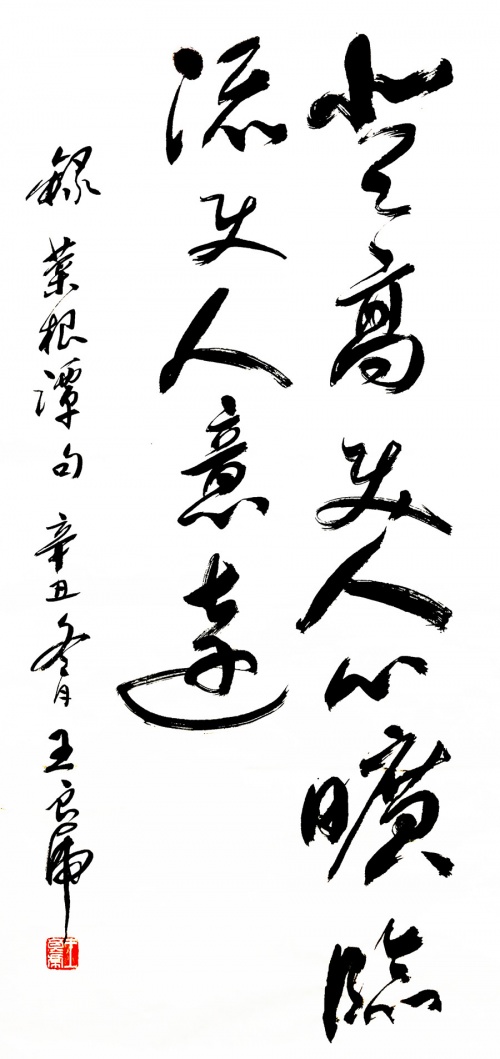 登高使人心曠臨
流使人意遠
錄菜根譚句 辛丑冬月 王良虎